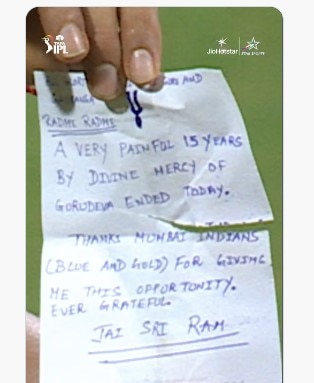 TATA IPL
JioHotstar
RADHE RADHE
A VERY PAINFUL 15 YEARS
BY DIVINE MERCY OF
GURUDEVA ENDED TODAY.
THANKS MUMBAI INDIANS
(BLUE AND GOLD) FOR GIVING
ME THIS OPPORTUNITY.
EVER GRATEFUL.
JAI SRI RAM